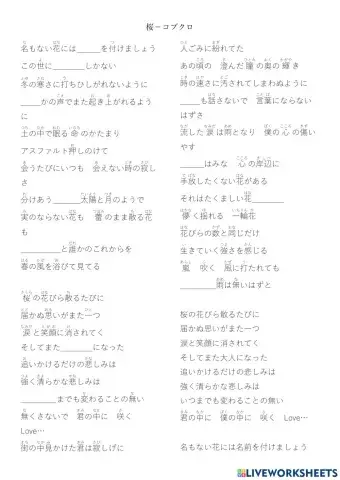 桜－コブクロ
名もない花には______を付けましょう
この世に________しかない
冬の寒さに打ちひしがれないように
_____かの声でまた起き上がれるよう
に
土の中で眠る命のかたまり
アスファルト押しのけて
会うたびにいつも 会えない時の寂し
さ
分けあう_____太陽と月のようで
実のならない花も 蕾のまま散る花
も
________と誰かのこれからを
春の風を浴びて見てる
桜の花びら散るたびに
届かぬ思いがまた一つ
涙と笑顔に消されてく
そしてまた________になった
追いかけるだけの悲しみは
強く清らかな悲しみは
________までも変わることの無い
無くさないで 君の中に 咲く
Love…
街の中見かけた君は寂しげに
人ごみに紛れてた
あの頃の 澄んだ瞳の奥の輝き
時の速さに汚されてしまわぬように
_____も話さないで 言葉にならない
はずさ
流した涙は雨となり 僕の心の傷い
やす
______はみな 心の岸辺に
手放したくない花がある
それはたくましい花________
儚く揺れる 一輪花
花びらの数と同じだけ
生きていく強さを感じる
嵐 吹く 風に打たれても
________雨は無いはずと
桜の花びら散るたびに
届かぬ思いがまた一つ
涙と笑顔に消されてく
そしてまた大人になった
追いかけるだけの悲しみは
強く清らかな悲しみは
いつまでも変わることの無い
君の中に 僕の中に 咲く Love…
名もない花には名前を付けましょう
LIVEWORKSHEETS